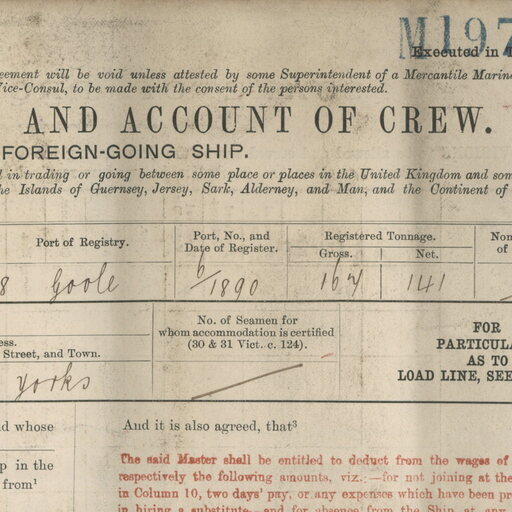 M197
Executed in
eement will be void unless attested by some Superintendent of a Mercantile Marine
Vice-Consul, to be made with the consent of the persons interested.
AND ACCOUNT OF CREW.
FOREIGN-GOING SHIP.
d in trading or going between some place or places in the United Kingdom and som
he Islands of Guernsey, Jersey, Sark, Alderney, and Man, and the Continent of
Port of Registry. Port, No., and Date of Register. Registered Tonnage. Nom
Gross. Net. of
8 Goole 6/1890 167 141
No. of Seamen for
whom accommodation is certified
(30 & 31 Vict. c. 124).
ess.
Street, and Town.
Yorks
FOR
PARTICULA
AS TO
LOAD LINE, SEE
d whose And it is also agreed, that³
p in the
from¹
The said Master shall be entitled to deduct from the wages of
respectively the following amounts, viz.:—for not joining at the
in Column 10, two days' pay, or any expenses which have been pr
in hiring a substitute, and for absence from the Ship at any